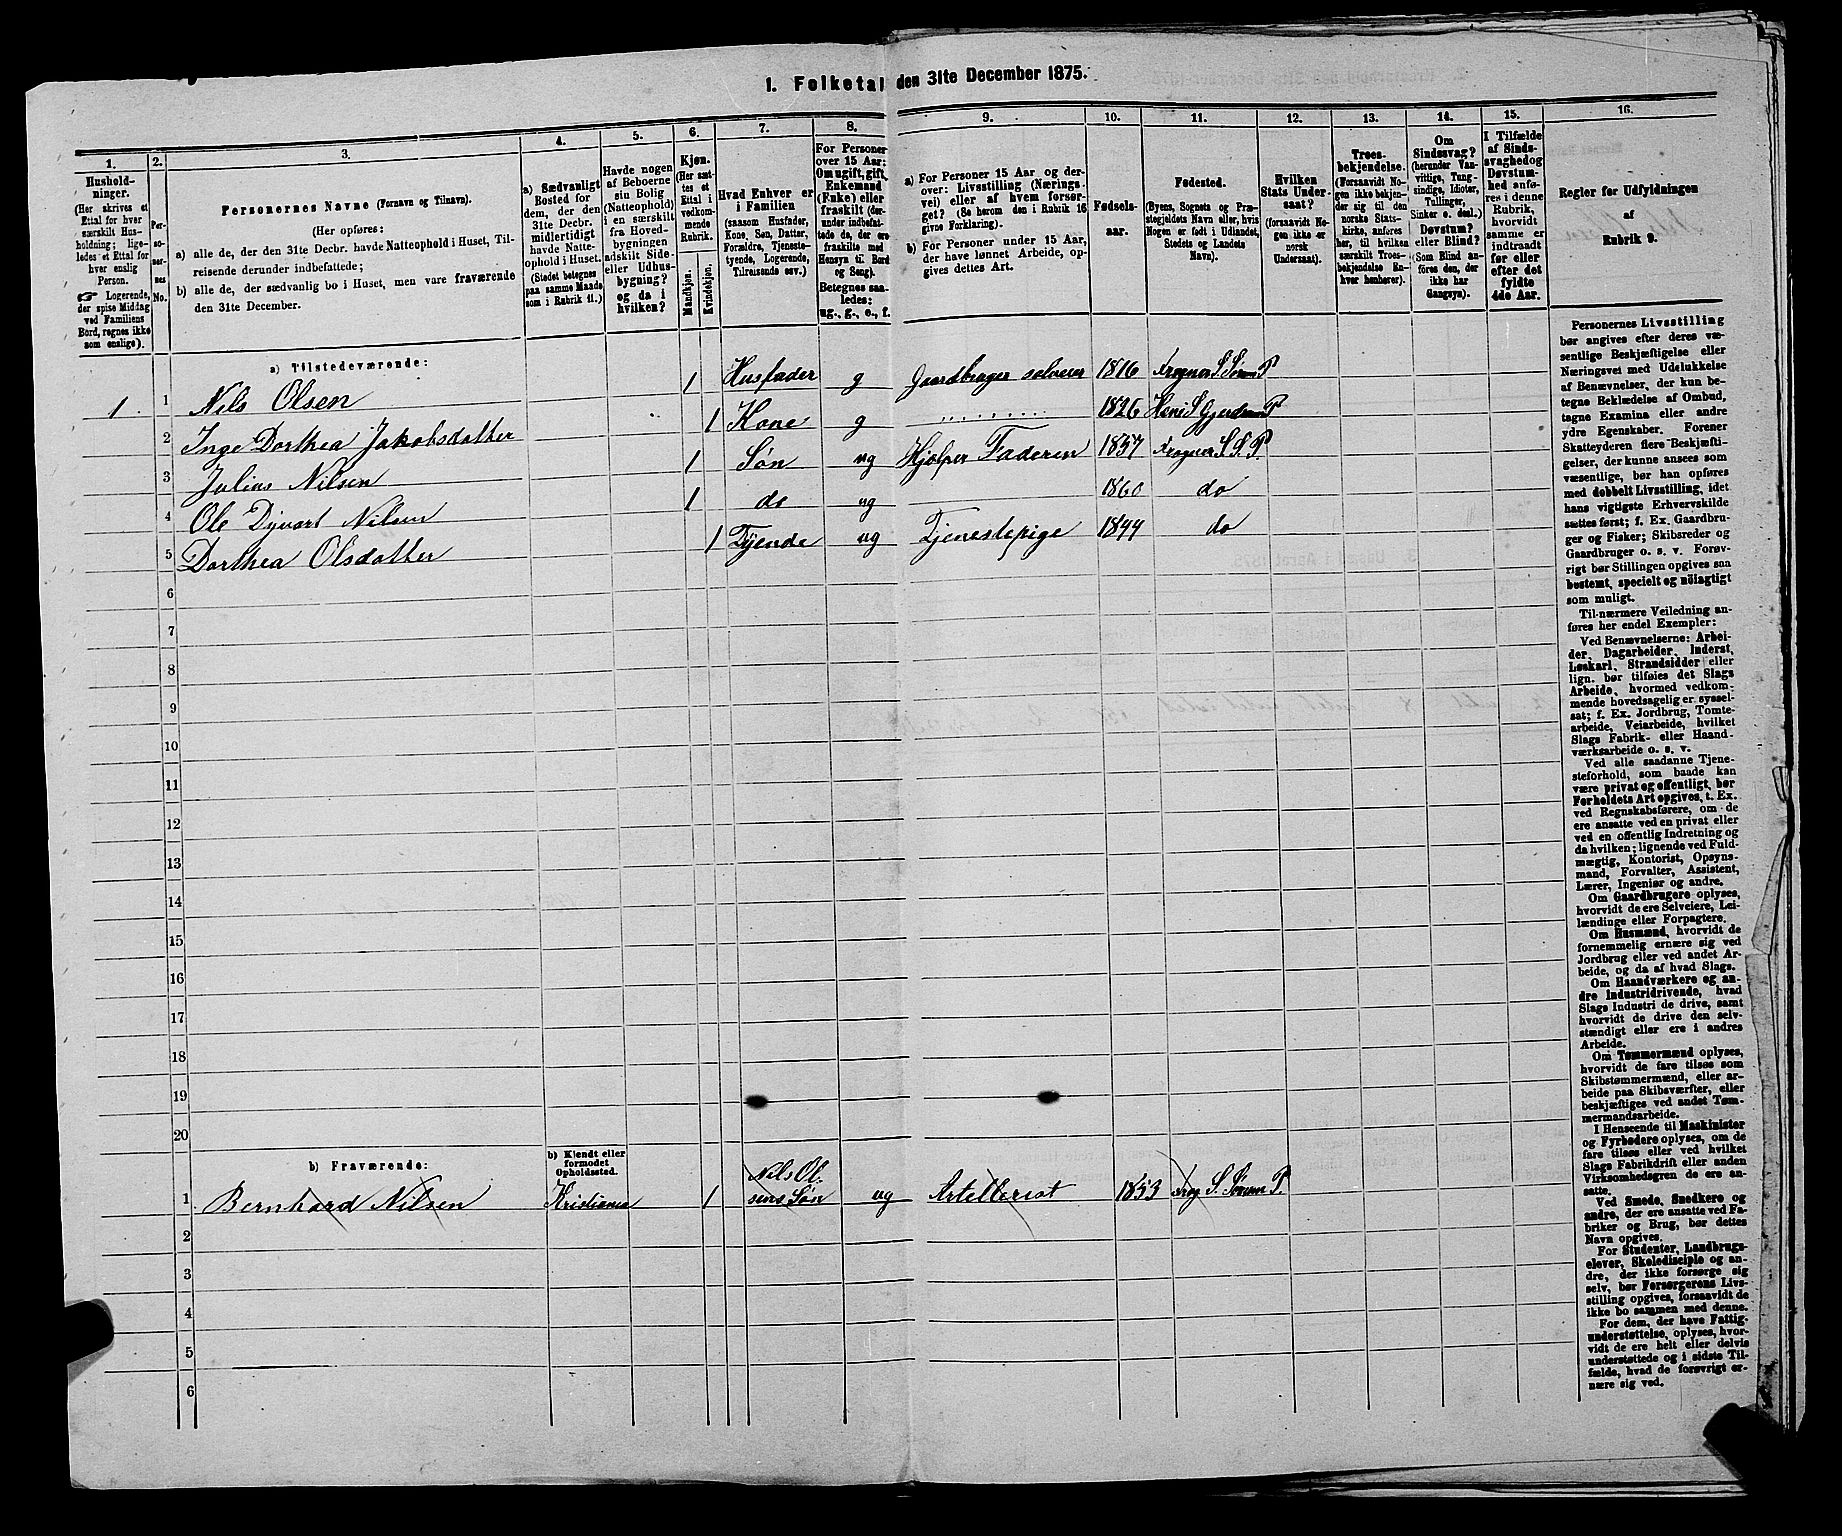 1. Folketal den 31te December 1875.
1. 2. 3. 4. 5. 6. 7. 8. 9. 10. 11. 12. 13. 14. 15. 16.
Hushold-
ninger.
(Her skrives et
Ettal for hver
særskilt Hus-
holdning; lige-
ledes et Ettal for
hver enslig
Person.
☞ Logerende,
der spise Middag
ved Familiens
Bord, regnes ikke
som enslige).
Per-
so-
ner-
nes
No.
Personernes Navne (Fornavn og Tilnavn).
(Her opføres:
a) alle de, der den 31te Decbr. havde Natteophold i Huset, Til-
reisende derunder indbefattede;
b) alle de, der sædvanlig bo i Huset, men vare fraværende
den 31te December.
a) Sædvanligt
Bosted for
dem, der den
31te Decbr.
midlertidigt
havde Natte-
ophold i Huset.
(Stedet betegnes
paa samme Maade
som i Rubrik 11.)
Havde nogen
af Beboerne
sin Bolig
(Natteophold)
i en særskilt
fra Hoved-
bygningen
adskilt Side-
eller Udhus-
bygning?
og da i
hvilken?
Kjøn.
(Her sæt-
tes et
Ettal i
vedkom-
mende
Rubrik.
Mandkjøn.
Kvindekjøn.
Hvad Enhver er
i Familien
(saasom Husfader,
Kone, Søn, Datter,
Forældre, Tjeneste-
tyende, Logerende,
Tilreisende osv.)
For Personer
over 15 Aar:
Om ugift, gift,
Enkemand
(Enke) eller
fraskilt (der-
under indbefat-
tede de, der ere
fraskilte med
Hensyn til Bord
og Seng).
Betegnes saa-
ledes:
ug., g., e., f.
a) For Personer 15 Aar og der-
over: Livsstilling (Nærings-
vei) eller af hvem forsør-
get? (Se herom den i Rubrik 16
givne Forklaring).
b) For Personer under 15 Aar,
der have lønnet Arbeide, op-
gives dettes Art.
Fødsels-
aar.
Fødested.
(Byens, Sognets og Præ-
stegjeldets Navn eller, hvis
Nogen er født i Udlandet,
Stedets og Landets
Navn).
Hvilken
Stats Under-
saat?
(forsaavidt No-
gen ikke er
norsk
Undersaat).
Troes-
bekjendelse.
(Forsaavidt No-
gen ikke bekjen-
der sig til den
norske Stats-
kirke, anføres
her, til hvilken
særskilt Troes-
bekjendelse En-
hver henhører).
Om
Sindssvag?
(herunder Van-
vittige, Tung-
sindige, Idioter,
Tullinger,
Sinker o. desl.)
Døvstum?
eller Blind?
(Som Blind an-
føres den, der
ikke har
Gangsyn).
I Tilfælde
af Sinds-
svaghed og
Døvstum-
hed anfø-
res i denne
Rubrik,
hvorvidt
samme er
indtraadt
før eller
efter det
fyldte
4de Aar.
Regler for Udfyldningen
af
Rubrik 9.
a) Tilstedeværende:
1 1 Nils Olsen 1 Husfader g Gaardbruger selveier 1816 Frogner S Sørum P
2 Inge Dorthea Jakobsdatter 1 Kone g 1826 Heni S Gjerdrum P
3 Julius Nilsen 1 Søn ug Hjælper Faderen 1857 Frogner S S. P.
4 Ole Dyvart Nilsen 1 do ug 1860 do
5 Dorthea Olsdatter 1 Tyende ug Tjenestepige 1844 do
6
7
8
9
10
11
12
13
14
15
16
17
18
19
20
b) Fraværende:
b) Kjendt eller
formodet
Opholdssted.
1 Bernhard Nilsen Kristiania 1 Nils Ol-
sens Søn ug Artellerist 1853 Frog S. Sørum P.
2
3
4
5
6
Personernes Livsstilling
bør angives efter deres væ-
sentlige Beskjæftigelse eller
Næringsvei med Udelukkelse
af Benævnelser, der kun be-
tegne Beklædelse af Ombud,
tagne Examina eller andre
ydre Egenskaber. Forener
Skatteyderen flere Beskjæfti-
gelser, der kunne ansees som
væsentlige, bør han opføres
med dobbelt Livsstilling, idet
hans vigtigste Erhvervskilde
sættes først; f. Ex. Gaardbru-
ger og Fisker; Skibsreder og
Gaardbruger o. s. v. Forøv-
rigt bør Stillingen opgives saa
bestemt, specielt og nöiagtigt
som muligt.
Til nærmere Veiledning an-
føres her endel Exempler:
Ved Benævnelserne: Arbei-
der, Dagarbeider, Inderst,
Løskarl, Strandsidder eller
lign. bør tilføies det Slags
Arbeide, hvormed vedkom-
mende hovedsagelig er syssel-
sat; f. Ex. Jordbrug, Tomte-
arbeide, Veiarbeide, hvilket
Slags Fabrik- eller Haand-
værksarbeide o. s. v.
Ved alle saadanne Tjene-
steforhold, som baade kan
være privat og offentligt, bør
Forholdets Art opgives, t. Ex.
ved Regnskabsførere, om de
ere ansatte ved en privat eller
ved en offentlig Indretning og
da hvilken; lignende ved Fuld-
mægtig, Kontorist, Opsyns-
mand, Forvalter, Assistent,
Lærer, Ingeniør og andre.
Om Gaardbrugere oplyses,
hvorvidt de ere Selveiere, Lei-
lændinge eller Forpagtere.
Om Husmænd, hvorvidt de
fornemmelig ernære sig ved
Jordbrug eller ved andet Ar-
beide, og da af hvad Slags.
Om Haandværkere og an-
dre Industridrivende, hvad
Slags Industri de drive, samt
hvorvidt de drive den selv-
stændigt eller ere i andres
Arbeide.
Om Tømmermænd oplyses,
hvorvidt de fare tilsøs som
Skibstømmermænd, eller ar-
beide paa Skibsværfter, eller
beskjæftiges ved andet Tøm-
mermandsarbeide.
I Henseende til Maskinister
og Fyrbødere oplyses, om de
fare tilsøs eller ved hvilket
Slags Fabrikdrift eller anden
Virksomhedsgren de ere an-
satte.
Ved Smede, Snedkere og
andre, der ere ansatte ved Fa-
briker og Brug, bør dettes
Navn opgives.
For Studenter, Landbrugs-
elever, Skoledisciple og an-
dre, der ikke forsørge sig
selv, bør Forsørgerens Livs-
stilling opgives, forsaavidt de
ikke bo sammen med denne.
For dem, der have Fattig-
understøttelse, oplyses, hvor-
vidt de ere helt eller delvis
understøttede og i sidste Til-
fælde, hvad de forøvrigt er-
nære sig ved.